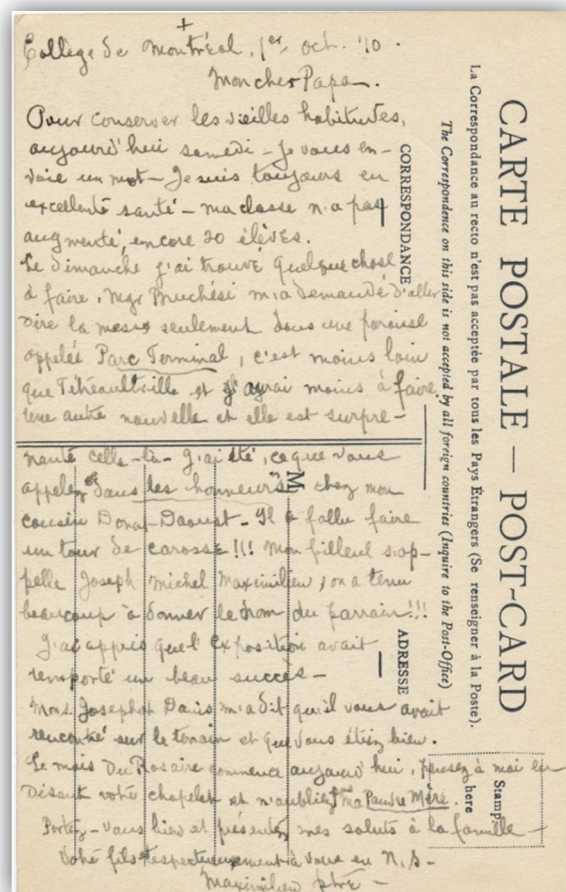 +
Collège de Montréal, 1er oct. '10.
Mon cher Papa.
Pour conserver les vieilles habitudes,
aujourd'hui samedi - Je vous en-
voie un mot - Je suis toujours en
excellente santé - ma classe n'a pas
augmenté, encore 20 élèves.
Le dimanche j'ai trouvé quelque chose
à faire. Mgr Bruchési m'a demandé d'aller
dire la messe seulement dans une paroisse
appelée Parc Terminal, c'est moins loin
que Tétreaultville et j'aurai moins à faire.
Une autre nouvelle et elle est surpre-
nante celle-là - J'ai été, ce que vous
appelez "dans les honneurs" chez mon
cousin Donat Daoust - Il a fallu faire
un tour de carosse!!! Mon filleul s'ap-
pelle Joseph Michel Maximilien, on a tenu
beaucoup à donner le nom du parrain!!!
J'ai appris que l'Exposition avait
remporté un beau succès -
Mons. Josephat m'a dit qu'il vous avait
rencontré sur le terrain et que vous étiez bien.
Le mois Du Rosaire commence aujourd'hui, pensez à moi en
disant votre chapelet et n'oubliez pas ma Pauvre Mère.
Portez-vous bien et présentez mes saluts à la famille -
Votre fils respectueusement à vous en N.S-
Maximilien ptre -
CARTE POSTALE — POST-CARD
La Correspondance au recto n'est pas acceptée par tous les Pays Étrangers (Se renseigner à la Poste).
The Correspondence on this side is not accepted by all foreign countries (Inquire to the Post-Office)
CORRESPONDANCE
ADRESSE
M
Stamp
here